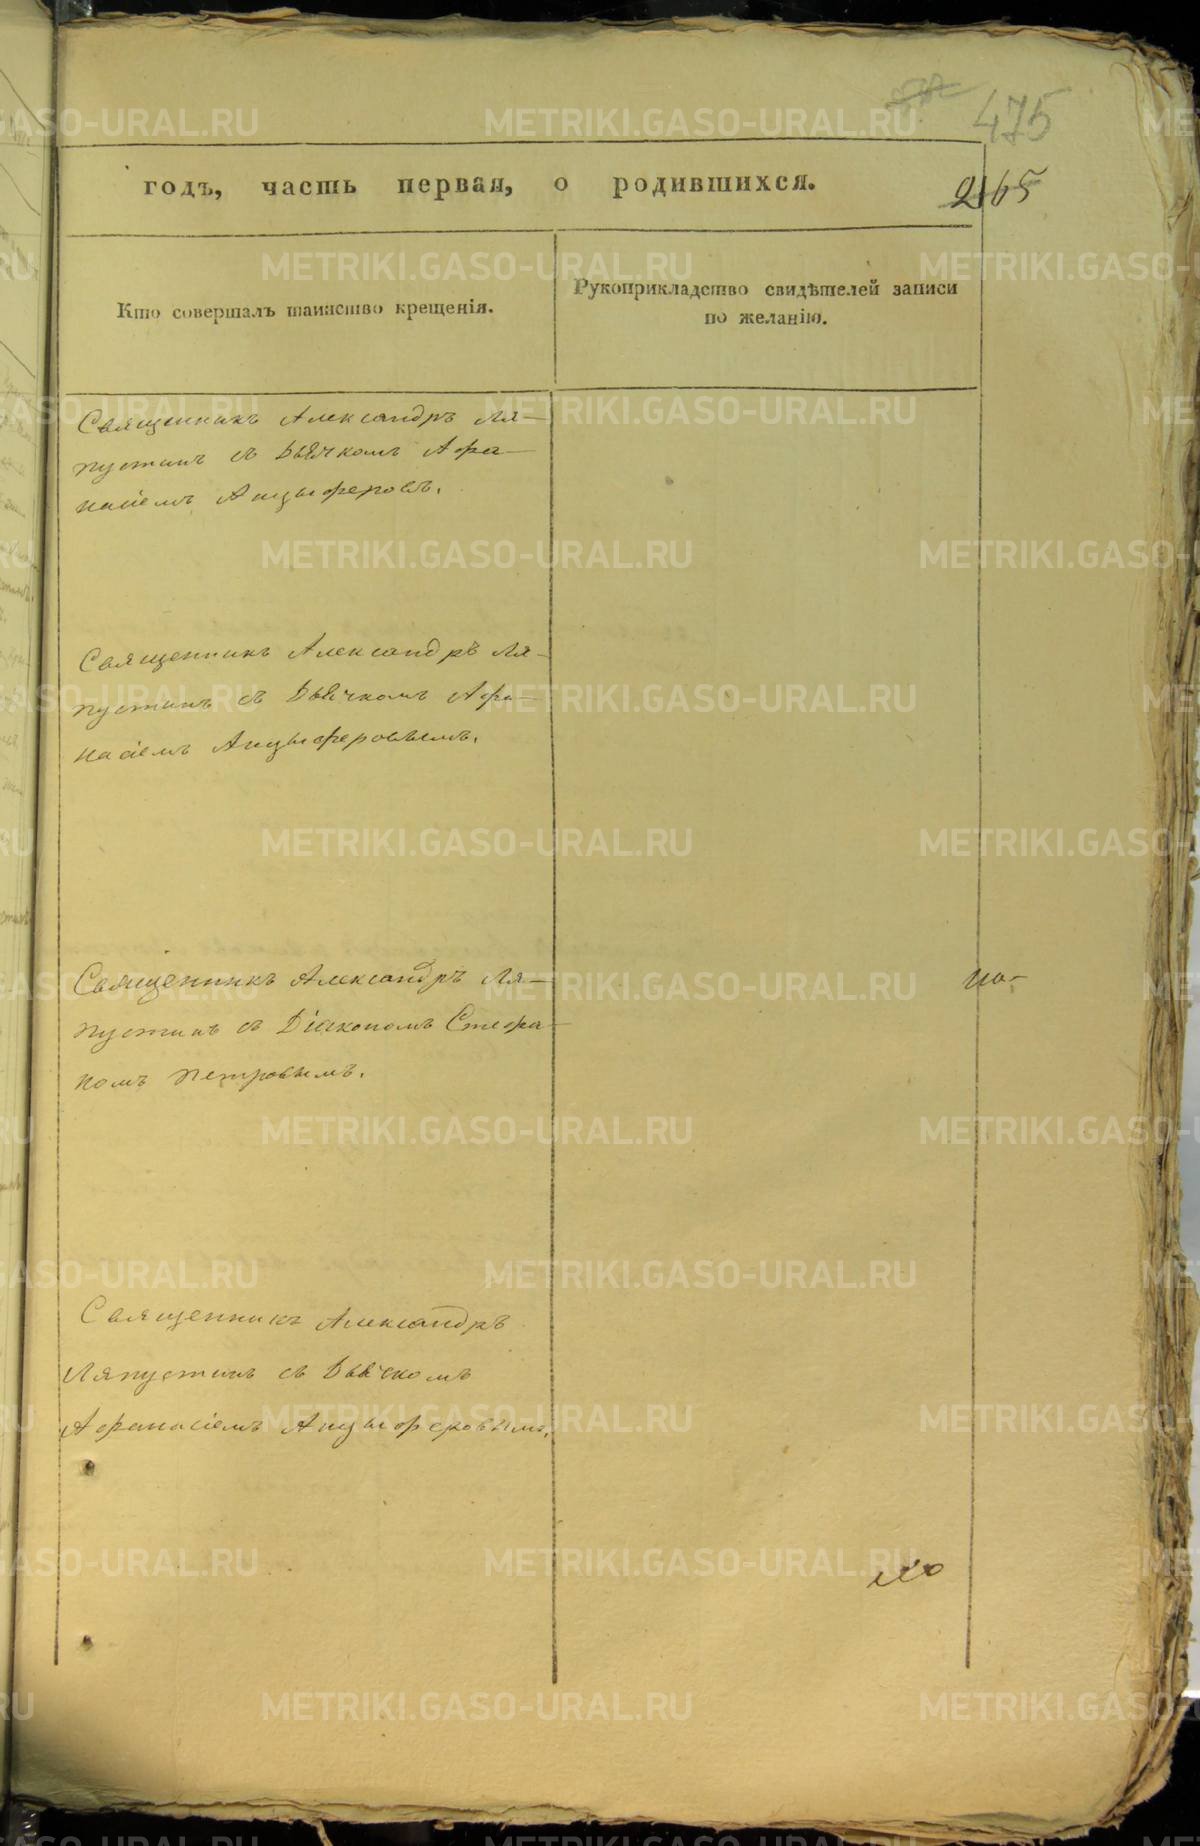 475
годъ, часть первая, о родившихся.
2165
Кто совершалъ таинство крещенія.
Рукоприкладство свидѣтелей записи
по желанію.
Священникъ Александръ Ля-
пустинъ съ Дьячкомъ Афа-
насіемъ Анцыферовъ.
Священникъ Александръ Ля-
пустинъ съ Дьячкомъ Афа-
насіемъ Анцыферовымъ.
Священникъ Александръ Ля-
пустинъ съ Діакономъ Стефа-
номъ Петровымъ.
Священникъ Александръ
Ляпустинъ съ Дьячкомъ
Афанасіемъ Анцыферовымъ.
METRIKI.GASO-URAL.RU